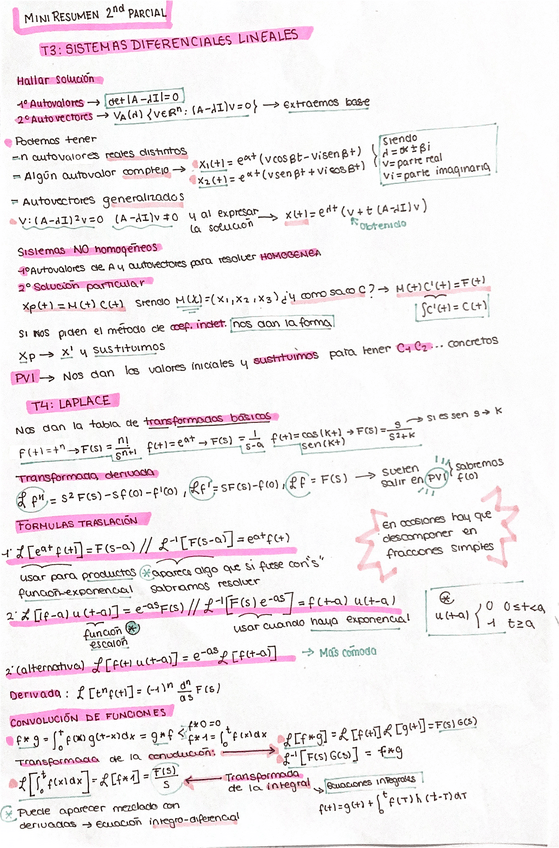 MINI RESUMEN 2nd PARCIAL
T3: SISTEMAS DIFERENCIALES LINEALES
Hallar solución
1º Autovalores → det|A-λI|=0
2º Autovectores → V_A(λ) {v∈ℝⁿ: (A-λI)v=0} → Extraemos base
Podemos tener
=n autovalores reales distintos
= Algún autovalor complejo → x₁(t) = e^αt (v cosβt - vi senβt)
x₂(t) = e^αt (v senβt + vi cosβt)
Siendo
λ = α ± βi
v = parte real
vi = parte imaginaria
= Autovectores generalizados
V: (A-λI)²v=0 (A-λI)v≠0 y al expresar la solución → x(t) = e^λt (v + t (A-λI)v)
Obtenido
Sistemas NO homogéneos
1º Autovalores de A y autovectores para resolver HOMOGENEA
2º Solución particular
Xp(t) = M(t) C(t) siendo M(t)=(x₁,x₂,x₃) ¿y como saco C? → M(t) C'(t) = F(t)
∫C'(t) = C(t)
Si nos piden el método de coef. indet. nos dan la forma
Xp → x' y sustituimos
PVI → Nos dan los valores iniciales y sustituimos para tener C₁ C₂... concretos
T4: LAPLACE
Nos dan la tabla de transformadas básicas
f(t)=tⁿ → F(s) = n!/sⁿ⁺¹ f(t)=e^at → F(s) = 1/s-a f(t)=cos(Kt) → F(s) = s/s²+k → Si es sen s → k
sen(Kt)
Transformada derivada
ℒf'' = s²F(s) - sf(0) - f'(0), ℒf' = sF(s) - f(0), ℒf = F(s) → suelen salir en PVI sabremos f(0)
FORMULAS TRASLACIÓN
1' ℒ[e^at f(t)] = F(s-a) // ℒ⁻¹[F(s-a)] = e^at f(t)
usar para productos función·exponencial
aparece algo que si fuese con "s" sabríamos resolver
en ocasiones hay que descomponer en fracciones simples
2' ℒ[f(t-a) u(t-a)] = e^-as F(s) // ℒ⁻¹[F(s) e^-as] = f(t-a) u(t-a)
función escalón
usar cuando haya exponencial
u(t-a) { 0 0≤t<a, 1 t≥a
2' (alternativa) ℒ[f(t) u(t-a)] = e^-as ℒ[f(t+a)] → Más cómoda
Derivada: ℒ[tⁿf(t)] = (-1)ⁿ dⁿ/ds F(s)
CONVOLUCIÓN DE FUNCIONES
f*g = ∫₀ᵗ f(x) g(t-x)dx = g*f < f*0=0
f*1 = ∫₀ᵗ f(x)dx
Transformada de la convolución: → ℒ[f*g] = ℒ[f(t)] ℒ[g(t)] = F(s)G(s)
ℒ⁻¹[F(s) G(s)] = f*g
ℒ[∫₀ᵗ f(x)dx] = ℒ[f*1] = F(s)/s ← Transformada de la integral
Ecuaciones integrales
f(t) = g(t) + ∫₀ᵗ f(τ) h(t-τ)dτ
Puede aparecer mezclado con
derivadas → Ecuación integro-diferencial